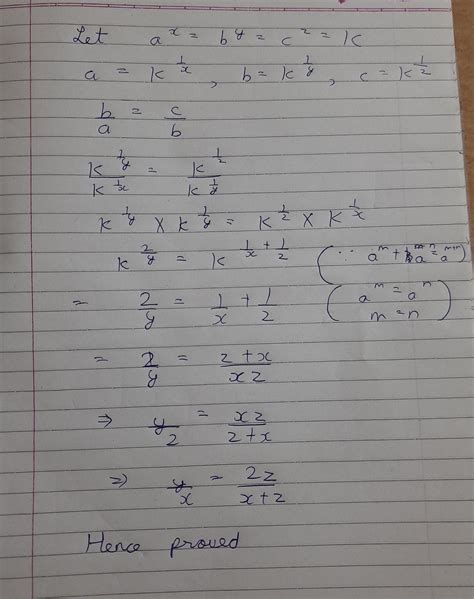 Let a^x = b^y = c^z = k
a = k^(1/x) , b = k^(1/y) , c = k^(1/z)
b/a = c/b
k^(1/y)/k^(1/x) = k^(1/z)/k^(1/y)
k^(1/y) × k^(1/y) = k^(1/z) × k^(1/x)
k^(2/y) = k^(1/x + 1/z)
= 2/y = 1/x + 1/z (a^m = a^n
m = n)
= 2/y = z + x/xz
⇒ y/2 = xz/z + x
⇒ y/x = 2z/x + z
Hence proved